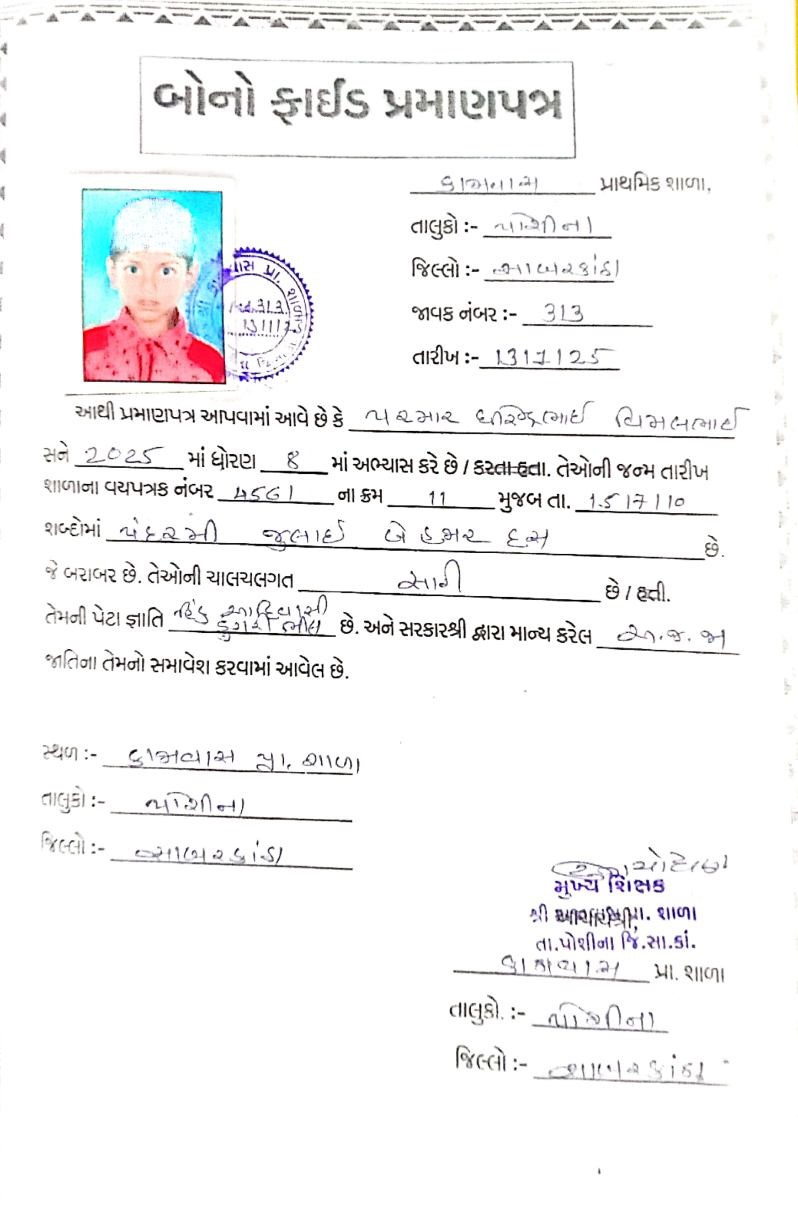 બોનો ફાઈડ પ્રમાણપત્ર
પ્રાથમિક શાળા,
તાલુકો :- પોશીના
જિલ્લો :- સાબરકાંઠા
જાવક નંબર :- 313
તારીખ :- 13/11/25
આથી પ્રમાણપત્ર આપવામાં આવે છે કે પરમાર વિમલભાઈ
સને 2025 માં ધોરણ 8 માં અભ્યાસ કરે છે / કરતા હતા. તેઓની જન્મ તારીખ
શાળાના વયપત્રક નંબર 4561 ના ક્રમ 11 મુજબ તા. 15/7/10
શબ્દોમાં પંદરમી જુલાઈ બે હજાર દસ છે.
જે બરાબર છે. તેઓની ચાલચલગત સારી છે / હતી.
તેમની પેટા જ્ઞાતિ હિંદુ આદિવાસી
ડુંગરી ભીલ છે. અને સરકારશ્રી દ્વારા માન્ય કરેલ અ.જ.જા
જાતિના તેમનો સમાવેશ કરવામાં આવેલ છે.
સ્થળ :- પ્રા. શાળા
તાલુકો :- પોશીના
જિલ્લો :- સાબરકાંઠા
મુખ્ય શિક્ષક
શ્રી પ્રા. શાળા
તા.પોશીના જિ.સા.કાં.
પ્રા. શાળા
તાલુકો. :- પોશીના
જિલ્લો :- સાબરકાંઠા